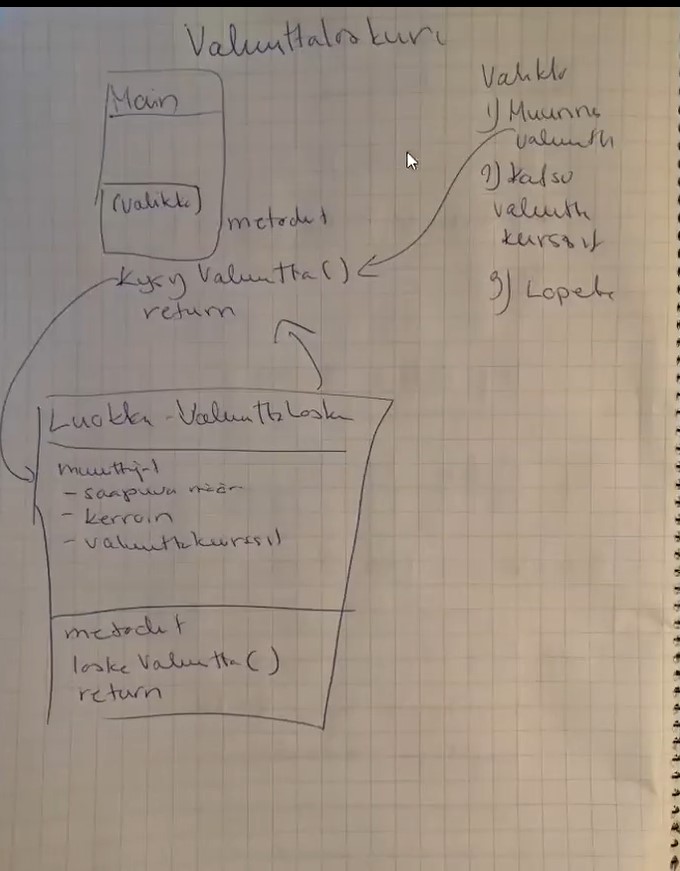 Valuuttalaskuri
Main
(valikko)
metodit
kysy Valuutta()
return
Valikko
1) Muunna
valuutta
2) Katso
valuutta
kurssit
3) Lopeta
Luokka - ValuuttaLaska
muuttujat
- saapuva määrä
- kerroin
- valuuttakurssit
metodit
laske Valuutta()
return